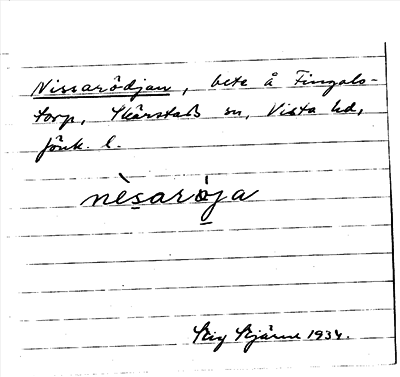 Nissarödjan, bete å Fingals-
torp, Skärstads sn, Vista hd,
Jönk. l.
nèsarö̀ja
Stig Stjärne 1934.